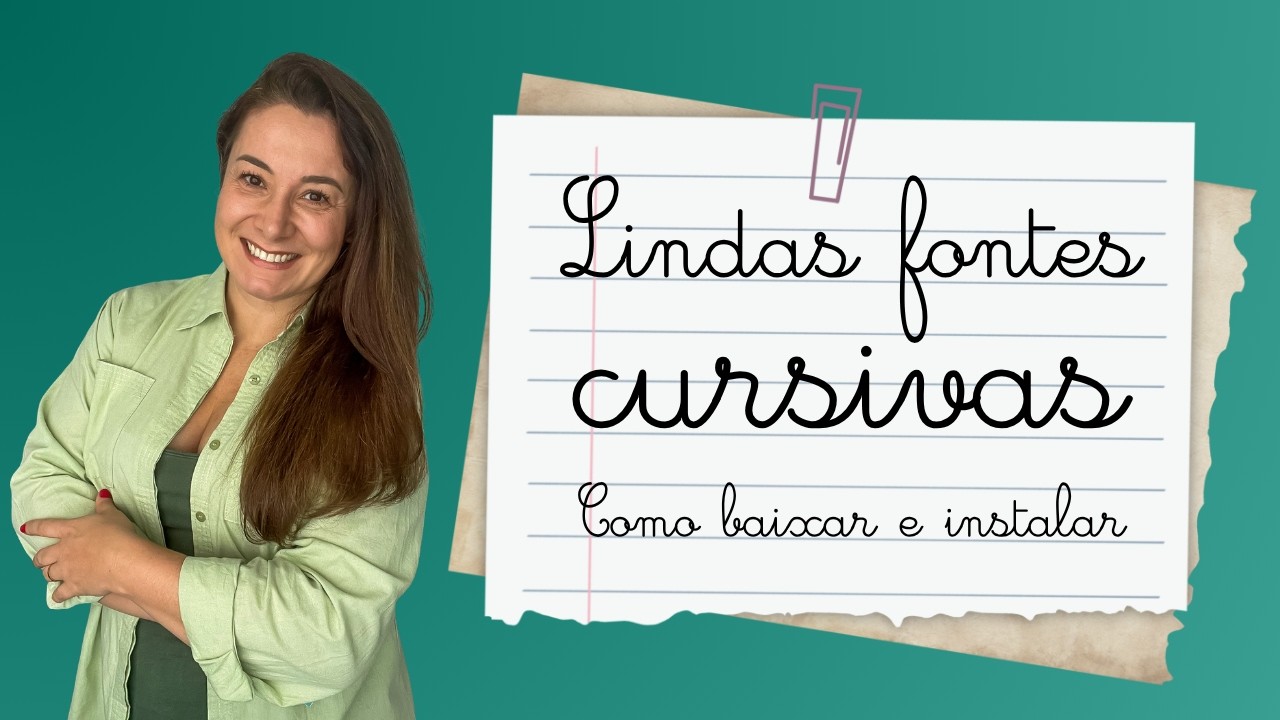 Lindas fontes
cursivas
Como baixar e instalar